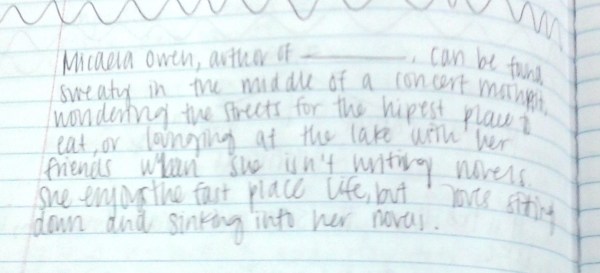 Micaela Owen, author of ________, can be found
sweaty in the middle of a concert moshpit,
wondering the streets for the hipest place to
eat, or lounging at the lake with her
friends when she isn't writing novels.
She enjoys the fast place life, but loves sitting
down and sinking into her novels.